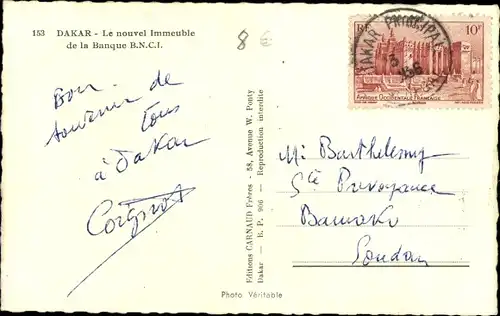 153 DAKAR - Le nouvel Immeuble
de la Banque B.N.C.I.
8 €
Bon
souvenir de
tous
à Dakar
RF 10F
DAKAR PRINCIPAL
AFRIQUE OCCIDENTALE FRANÇAISE
Editions CARNAUD Frères - 58, Avenue W. Ponty
Dakar - E. P. 906 - Reproduction interdite
Mr Barthelemy
Sté Prevoyance
Bamako
Soudan
Photo Véritable